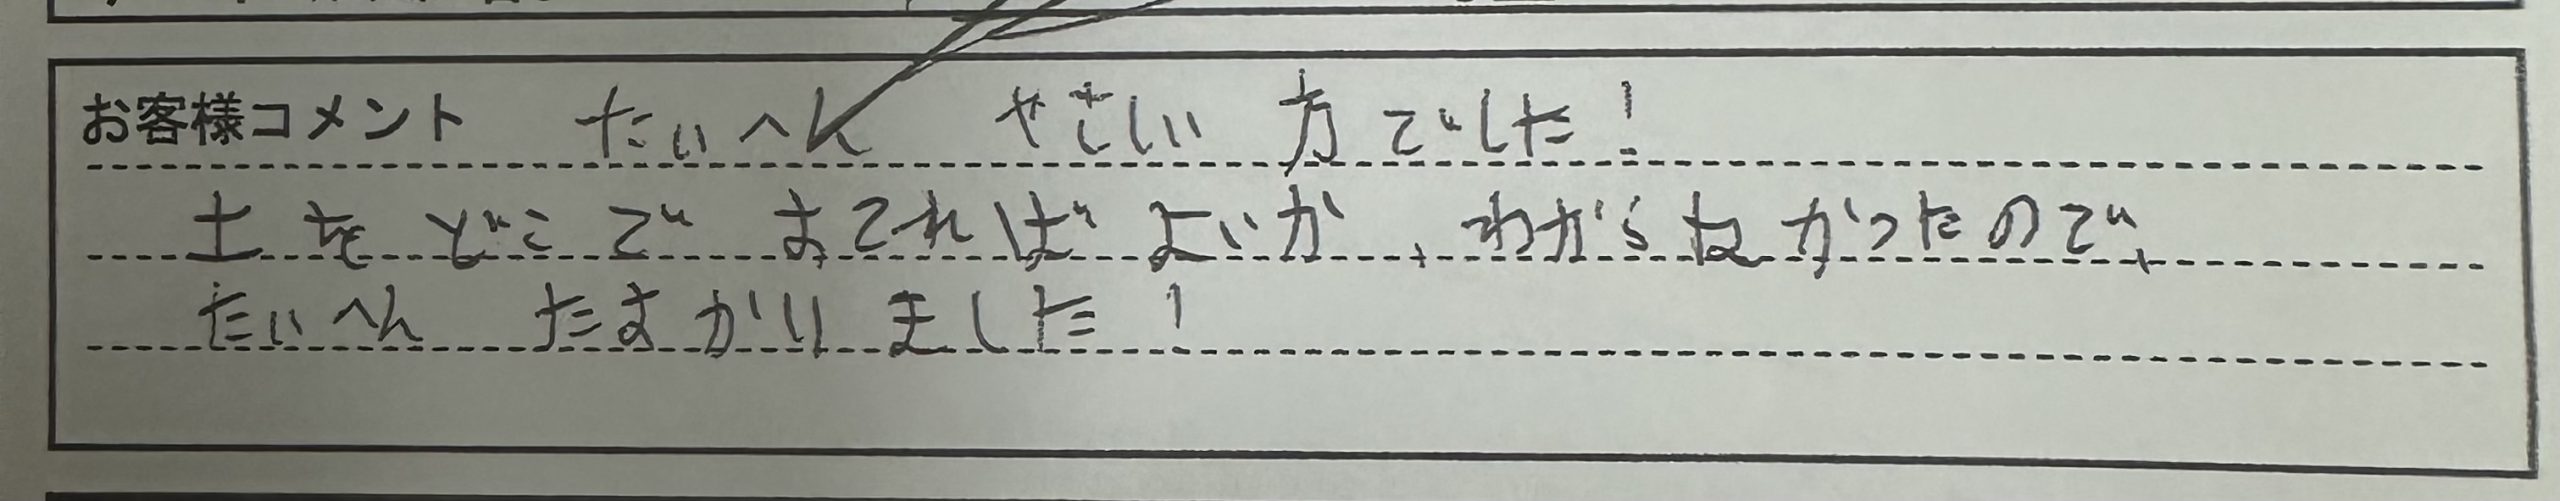 お客様コメント たいへん やさしい 方でした!
土をどこで すてればよいか、わからなかったので、
たいへん たすかりました!